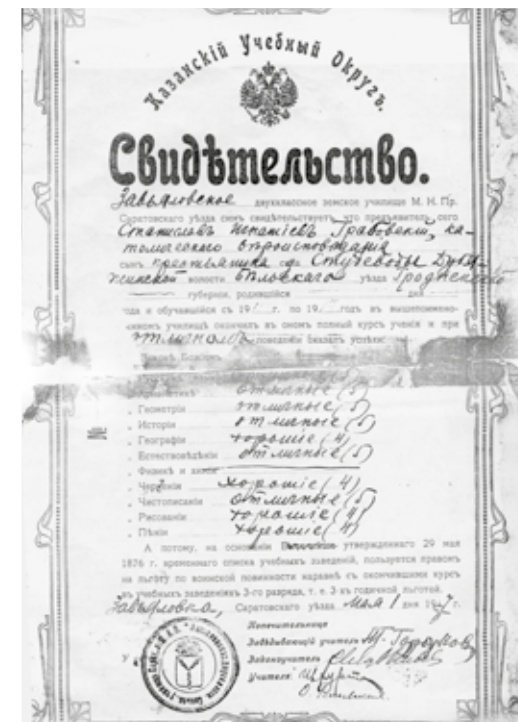 Казанскій Учебный Округъ.
Свидѣтельство.
Завьяловское двухклассное земское училище М. Н. Пр.
Саратовскаго уѣзда симъ свидѣтельствуетъ, что предъявитель сего
Станиславъ Игнатіевъ Грабовскій, ка-
толическаго вѣроисповѣданія
сынъ крестьянина
волости Бѣльскаго уѣзда Гродненской
губерніи, родившійся дня
года и обучавшійся съ 19 г. по 19 годъ въ вышепоимено-
ванномъ училищѣ окончилъ въ ономъ полный курсъ ученія и при
отличномъ поведеніи оказалъ успѣхи:
Законѣ Божіемъ
отличные (5)
„ Геометріи отличные (5)
„ Исторіи отличные (5)
„ Географіи хорошіе (4)
„ Естествовѣдѣніи отличные (5)
„ Физикѣ и химіи
„ Черченіи хорошіе (4)
„ Чистописаніи отличные (5)
„ Рисованіи хорошіе (4)
„ Пѣніи хорошіе (4)
А потому, на основаніи утвержденнаго 29 мая
1876 г. временнаго списка учебныхъ заведеній, пользуется правомъ
на льготу по воинской повинности наравнѣ съ окончившими курсъ
въ учебныхъ заведеніяхъ 3-го разряда, т. е. 3-хъ годичной льготой.
Завьяловка, Саратовскаго уѣзда Мая 1 дня 19 7 г.
№
Попечительница
Завѣдывающій учитель
Законоучитель
Учителя: